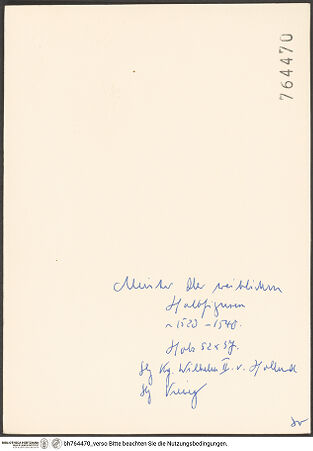 764470
Meister der weiblichen
Halbfiguren
~ 1520 - 1540.
Holz 52 x 37.
Slg Kg. Wilhelm II. v. Holland
Slg
BIBLIOTHECA HERTZIANA
bh764470, verso Bitte beachten Sie die Nutzungsbedingungen.